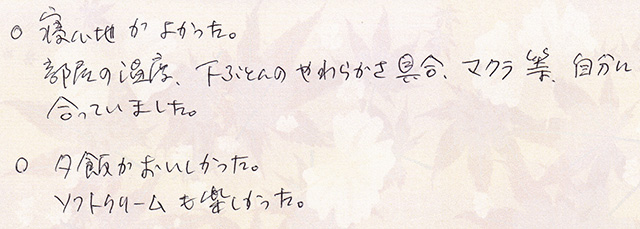 ○ 寝心地がよかった。
部屋の温度、下ぶとんのやわらかさ具合、マクラ等、自分に
合っていました。
○ 夕飯がおいしかった。
ソフトクリームも楽しかった。